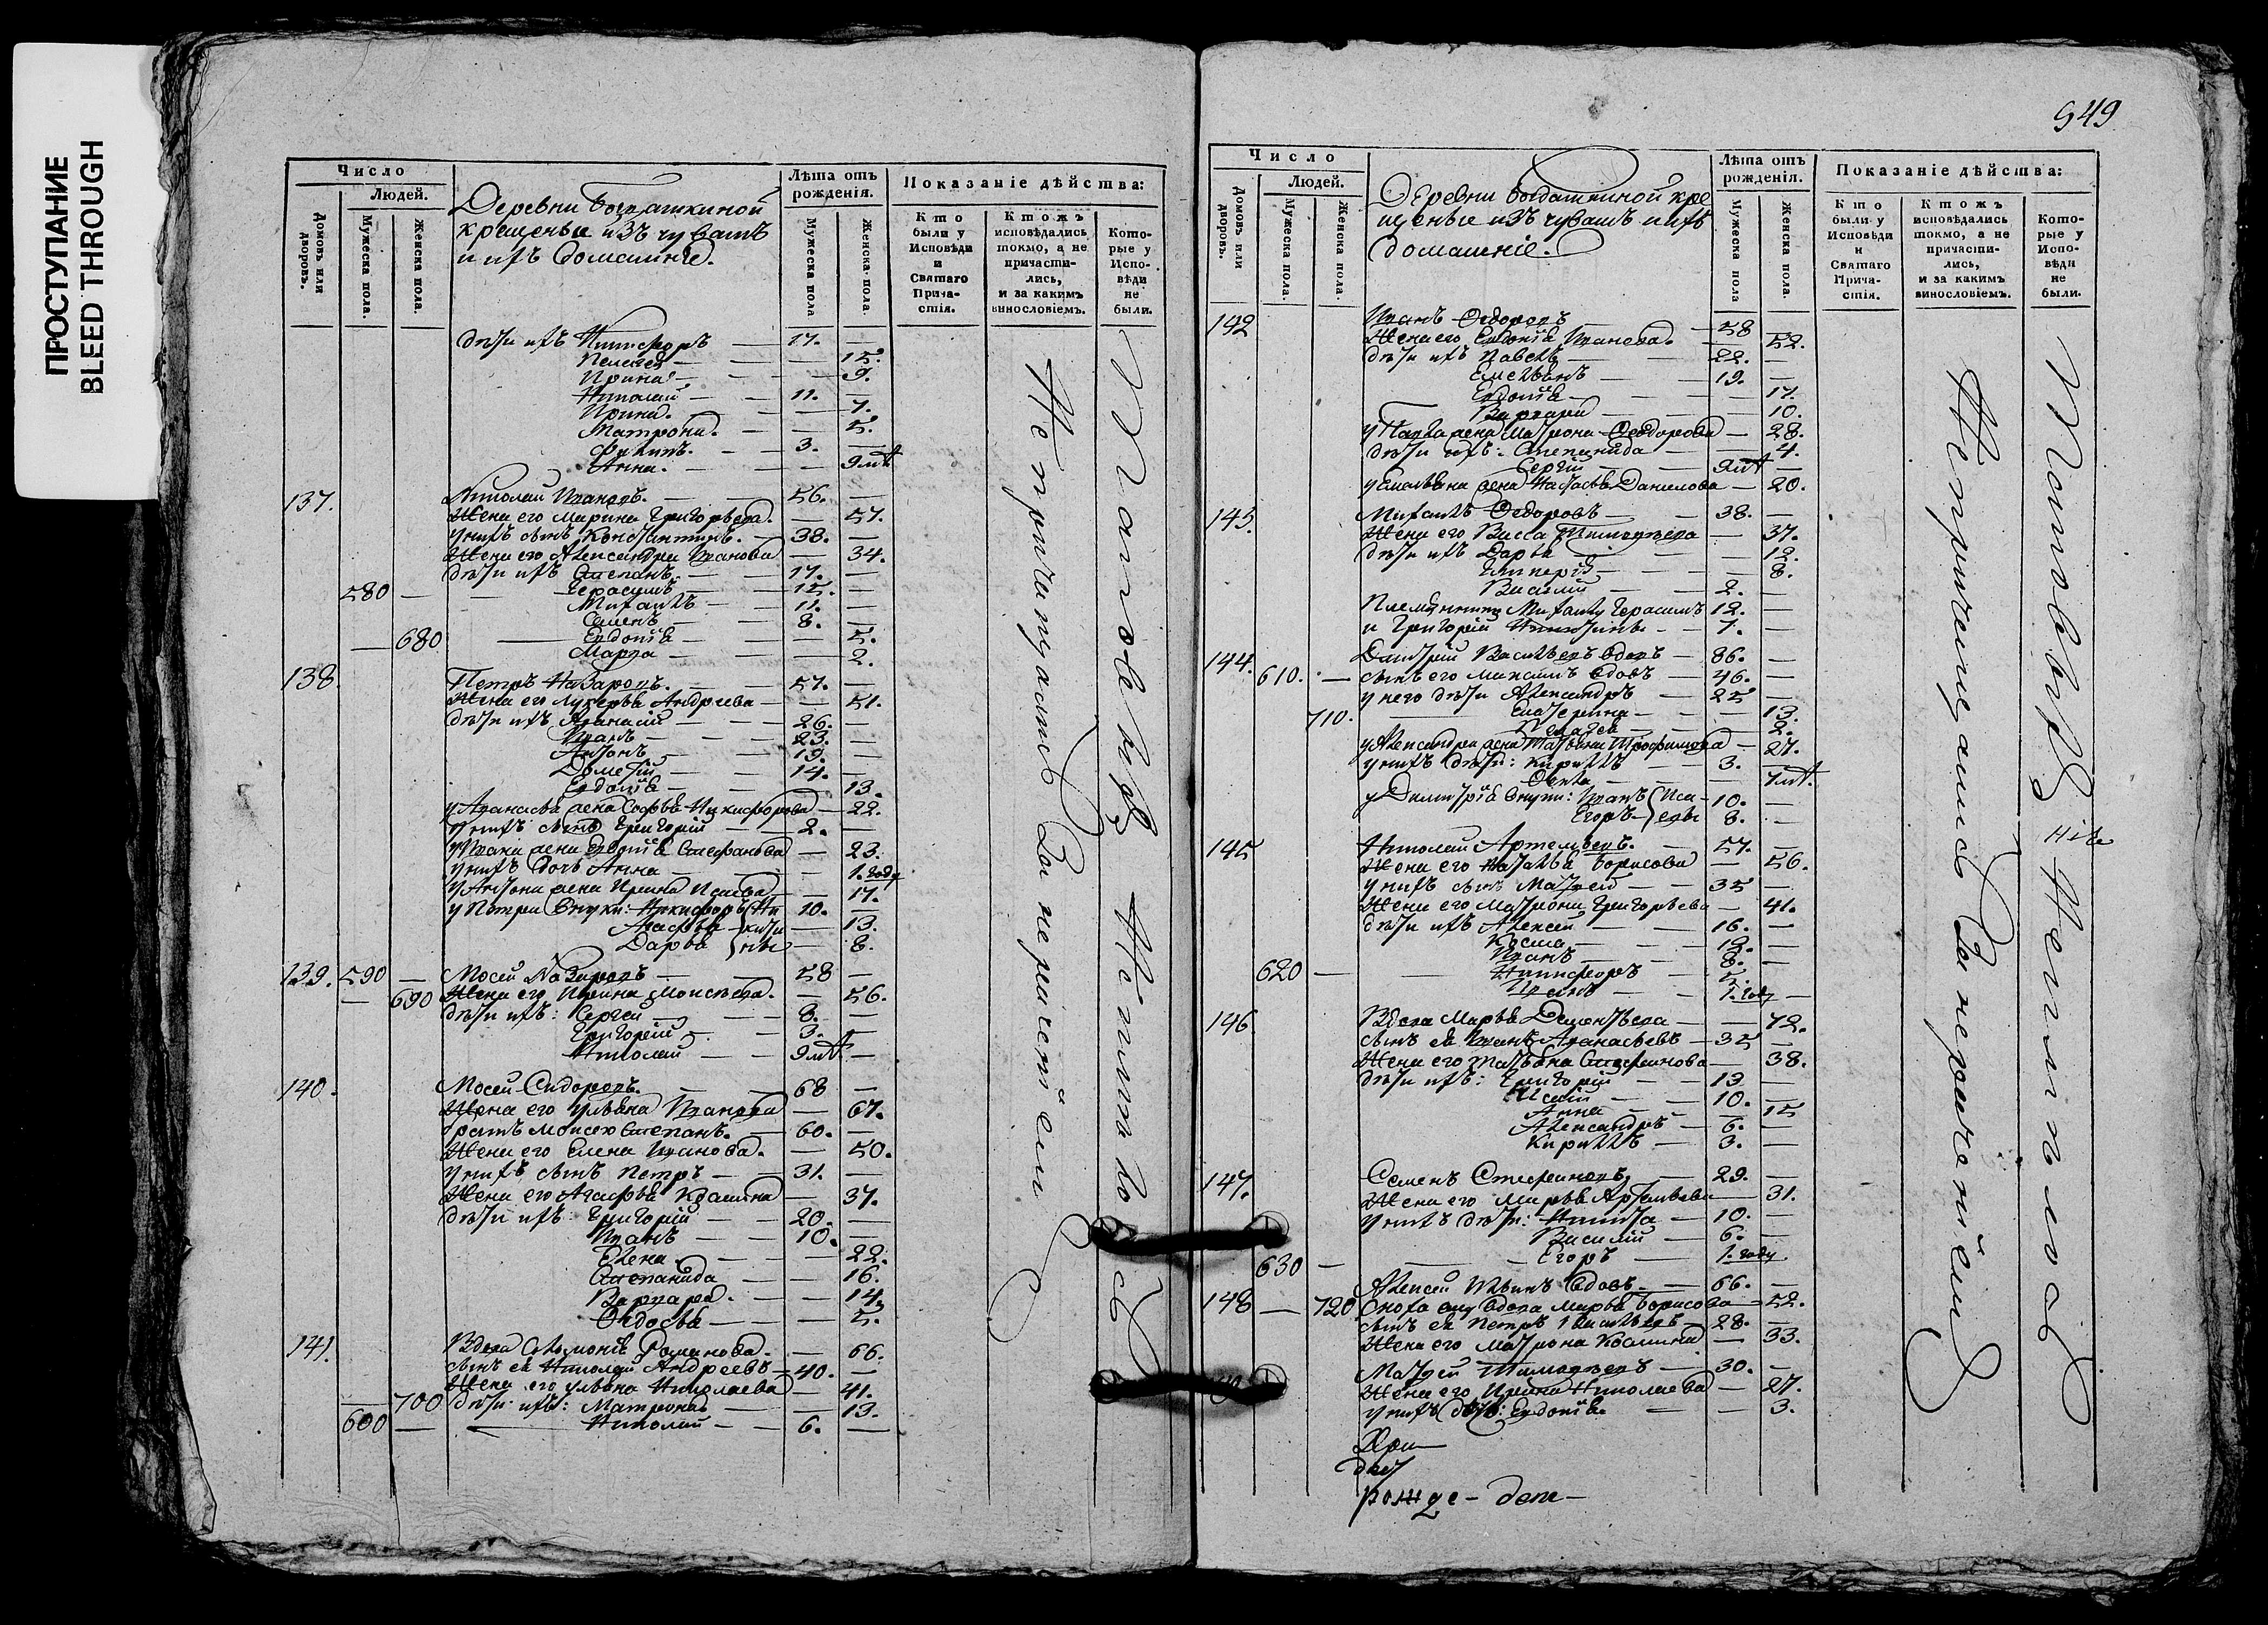 ПРОСТУПАНИЕ
BLEED THROUGH
Число
Людей.
Домовъ или дворовъ.
Мужеска пола.
Женска пола.
Деревни Богдашкиной
крещеные изъ чувашъ
и ихъ домашніе.
Лѣта отъ рожденія.
Мужеска пола
Женска пола.
Показаніе дѣйства:
Кто были у Исповѣди и Святаго Прича-стія.
Ктожъ исповѣдались токмо, а не причасти-лись, и за какимъ винословіемъ.
Кото-рые у Испо-вѣди не были.
дѣти ихъ Никифоръ — 17. —
Пелагея — — 15.
Ирина — — 9.
Николай — 11. —
Ирина. — — 7.
Матрона. — — 5.
Филипъ. — 3. —
Анна. — — 9 мѣ
137. Николай Ивановъ. — 56. —
Жена его Марина Григорьева. — 57.
У нихъ сынъ Константинъ. — 38. —
Жена его Александра Иванова — 34.
дѣти ихъ Степанъ — 17. —
580 — Герасимъ — 15. —
Михаилъ — 11. —
Семенъ — 8. —
— 680 Евдокія — — 5.
Марѳа — — 2.
138. Петръ Назаровъ. — 57. —
Жена его Лукерья Андреева — 51.
дѣти ихъ Аѳанасій — 26. —
Иванъ — 23. —
Антонъ — 19. —
Дометій — 14. —
Евдокія — — 13.
у Аѳанасья жена Софья Никифорова — 22.
У нихъ сынъ Григорій — 2. —
у Ивана жена Евдокія Стефанова — 23.
у нихъ дочь Анна — — 1. году
У Антона жена Ирина Исаева — 17.
у Петра внуки: Никифоръ Ни 10. —
Агафья кити — 13.
Дарья ны — 8.
139. 590 — Мосей Назаровъ — 58 —
— 690 Жена его Ирина Моисеева. — 56.
дѣти ихъ: Сергей — 8. —
Григорій — 3. —
Николай — 9 мѣ. —
140. Мосей Сидоровъ. — 68 —
Жена его Ульяна Иванова — 67.
братъ Моисею Степанъ. — 60. —
Жена его Елена Иванова. — 50.
у нихъ сынъ Петръ — 31. —
Жена его Агафья Козмина — 37.
дѣти ихъ: Григорій — 20. —
Иванъ — 10. —
Елена — — 22.
Степанида — — 16.
Варвара. — — 14.
Ѳедосья — — 5.
141. Вдова Соломонія Романова. — 66.
сынъ ея Николай Андреевъ — 40. —
Жена его Ульяна Николаева — 41.
— 700 дѣти ихъ: Матрона — — 13.
600 — Николай — 6. —
Не причащались за нерачениемъ
Итого вдворѣ Не никого съ
949
Число
Людей.
Домовъ или дворовъ.
Мужеска пола.
Женска пола.
Деревни Богдашкиной кре
щеные изъ чувашъ и ихъ
домашніе.
Лѣта отъ рожденія.
Мужеска пола
Женска пола.
Показаніе дѣйства:
Кто были у Исповѣди и Святаго Прича-стія.
Ктожъ исповѣдались токмо, а не причасти-лись, и за какимъ винословіемъ.
Кото-рые у Испо-вѣди не были.
142 Иванъ Ѳедоровъ — 58
Жена его Евдокія Иванова. — 52.
дѣти ихъ Павелъ — 22. —
Емельянъ — 19. —
Евдокія — — 17.
Варвара — — 10.
у Павла жена Матрона Ѳеодорова — 28.
дѣти ихъ: Степанида — 4.
Сергій — 9 мѣ —
у Емельяна жена Наталья Данилова — 20.
143. Михаилъ Ѳедоровъ — 38. —
Жена его Васса Тимоѳеева — 37.
дѣти ихъ Дарья — — 12.
— 8.
Василій — 2. —
Племянники Михаилу Герасимъ 12. —
и Григорій Никитины — 7. —
144. Дмитрій Васильевъ вдовъ — 86. —
610. — сынъ его Максимъ вдовъ — 46. —
у него дѣти Александръ — 25 —
710. Екатерина — — 13.
Пелагея — — 2.
у Александра жена Татьяна Трофимова — 27.
у нихъ дѣти: Кириллъ — 3. —
Ѳекла — — 7 мѣ.
у Димитрія внуки: Иванъ Иса 10. —
Егоръ евы 8. —
145 Николай Артемьевъ. — 57. —
Жена его Наталья Борисова — 56.
у нихъ сынъ Матвей — 35 —
Жена его Матрона Григорьева — 41.
дѣти ихъ Алексей — 16. —
Козма — 12. —
Иванъ — 8. —
620 — Никифоръ — 5. —
Иванъ — 1. году —
146. Вдова Марья Дементьева — 72.
сынъ ея Иванъ Аѳанасьевъ — 35 —
Жена его Татьяна Стефанова — 38.
дѣти ихъ: Григорій — 13 —
Исай — 10. —
Анна — — 15
Александръ — 6. —
Кириллъ — 3. —
147. Семенъ Стефановъ — 29. —
Жена его Марья Артемьева — 31.
у нихъ дѣти: Никита — 10. —
Василій — 6. —
630 — Егоръ — 1. году
Алексей Ильинъ вдовъ — 66. —
148 — 720 Сноха ему вдова Марья Борисова — 52.
сынъ ея Петръ — 28. —
Жена его Матрона Козмина — 33.
Матвей Тимоѳеевъ — 30. —
Жена его Ирина Николаева — 27.
у нихъ дочь: Евдокія. — — 3.
Не причащались за нерачениемъ